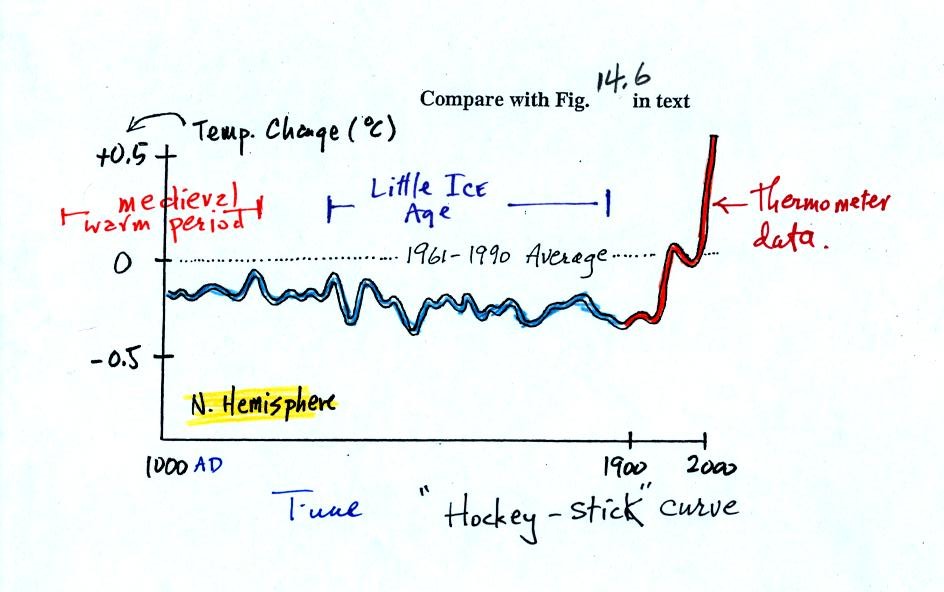 Compare with Fig. 14.6 in text
Temp. Change (°C)
+0.5
medieval
warm period
Little Ice
Age
← Thermometer
data.
0
1961-1990 Average
-0.5
N. Hemisphere
1000 AD
1900
2000
Time
"Hockey-stick" curve